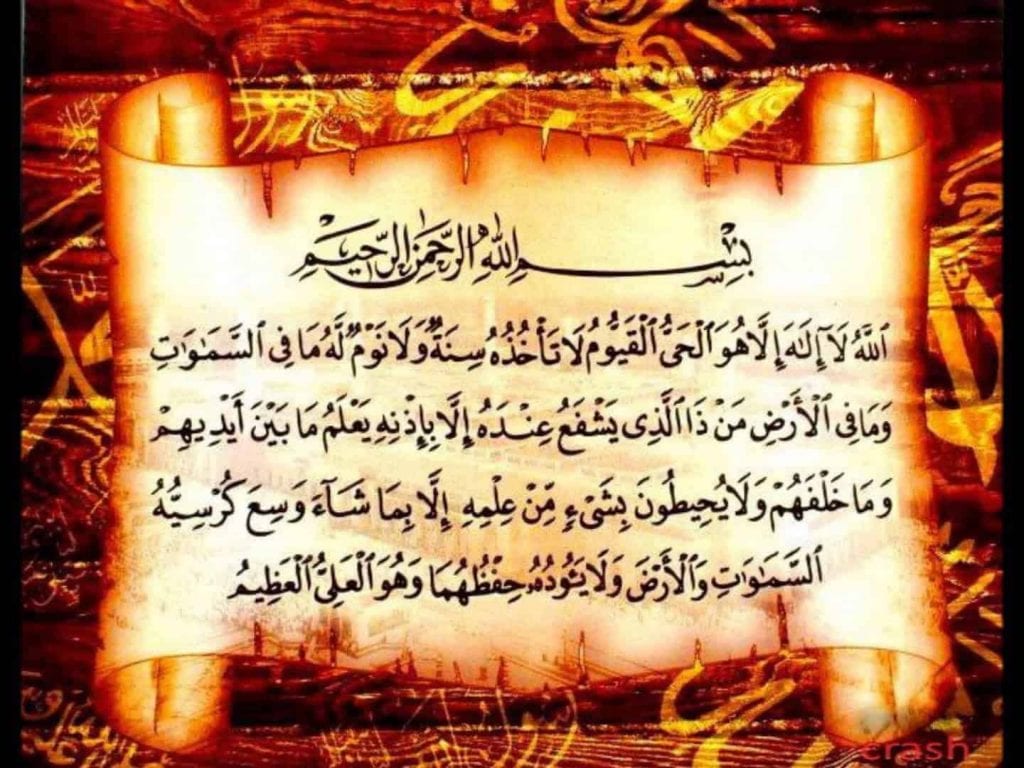 بِسْمِ اللَّهِ الرَّحْمَٰنِ الرَّحِيمِ
ٱللَّهُ لَآ إِلَٰهَ إِلَّا هُوَ ٱلْحَىُّ ٱلْقَيُّومُ لَا تَأْخُذُهُۥ سِنَةٌ وَلَا نَوْمٌ لَّهُۥ مَا فِى ٱلسَّمَٰوَٰتِ
وَمَا فِى ٱلْأَرْضِ مَن ذَا ٱلَّذِى يَشْفَعُ عِندَهُۥٓ إِلَّا بِإِذْنِهِۦ يَعْلَمُ مَا بَيْنَ أَيْدِيهِمْ
وَمَا خَلْفَهُمْ وَلَا يُحِيطُونَ بِشَىْءٍ مِّنْ عِلْمِهِۦٓ إِلَّا بِمَا شَآءَ وَسِعَ كُرْسِيُّهُ
ٱلسَّمَٰوَٰتِ وَٱلْأَرْضَ وَلَا يَـُٔودُهُۥ حِفْظُهُمَا وَهُوَ ٱلْعَلِىُّ ٱلْعَظِيمُ
crash